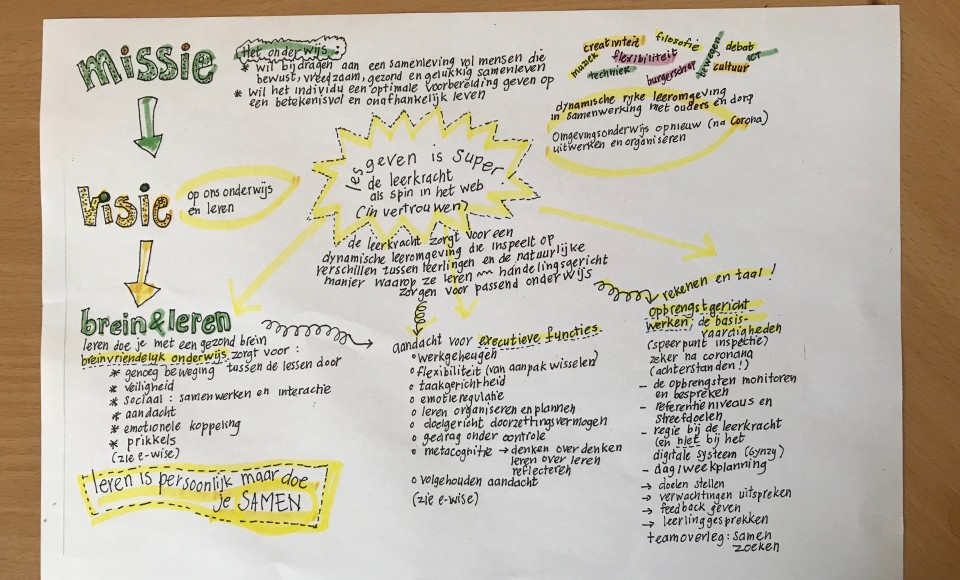 missie
Het onderwijs:
* wil bijdragen aan een samenleving vol mensen die
bewust, vreedzaam, gezond en gelukkig samenleven
* wil het individu een optimale voorbereiding geven op
een betekenisvol en onafhankelijk leven
creativiteit
filosofie
muziek
flexibiliteit
techniek
burgerschap
bewegen
debat
ICT
cultuur
dynamische rijke leeromgeving
in samenwerking met ouders en dorp
Omgevingsonderwijs opnieuw (na Corona)
uitwerken en organiseren
visie
op ons onderwijs
en leren
lesgeven is super
de leerkracht
als spin in het web
(in vertrouwen)
de leerkracht zorgt voor een
dynamische leeromgeving die inspeelt op
verschillen tussen leerlingen en de natuurlijke
manier waarop ze leren handelingsgericht
zorgen voor passend onderwijs
brein&leren
leren doe je met een gezond brein
breinvriendelijk onderwijs zorgt voor:
* genoeg beweging tussen de lessen door
* veiligheid
* sociaal: samenwerken en interactie
* aandacht
* emotionele koppeling
* prikkels
(zie e-wise)
leren is persoonlijk maar doe
je SAMEN
aandacht voor executieve functies.
o werkgeheugen
o flexibiliteit (van aanpak wisselen)
o taakgerichtheid
o emotieregulatie
o leren organiseren en plannen
o doelgericht doorzettingsvermogen
o gedrag onder controle
o metacognitie → denken over denken
leren over leren
reflecteren
o volgehouden aandacht
(zie e-wise)
rekenen en taal!
opbrengstgericht
werken, de basis-
vaardigheden
(speerpunt inspectie)
zeker na corona
(achterstanden!)
- de opbrengsten monitoren
en bespreken
- referentieniveaus en
streefdoelen
- regie bij de leerkracht
(en niet bij het
digitale systeem (Gynzy)
- dag/weekplanning
→ doelen stellen
→ verwachtingen uitspreken
→ feedback geven
→ leerlinggesprekken
teamoverleg: samen
zoeken